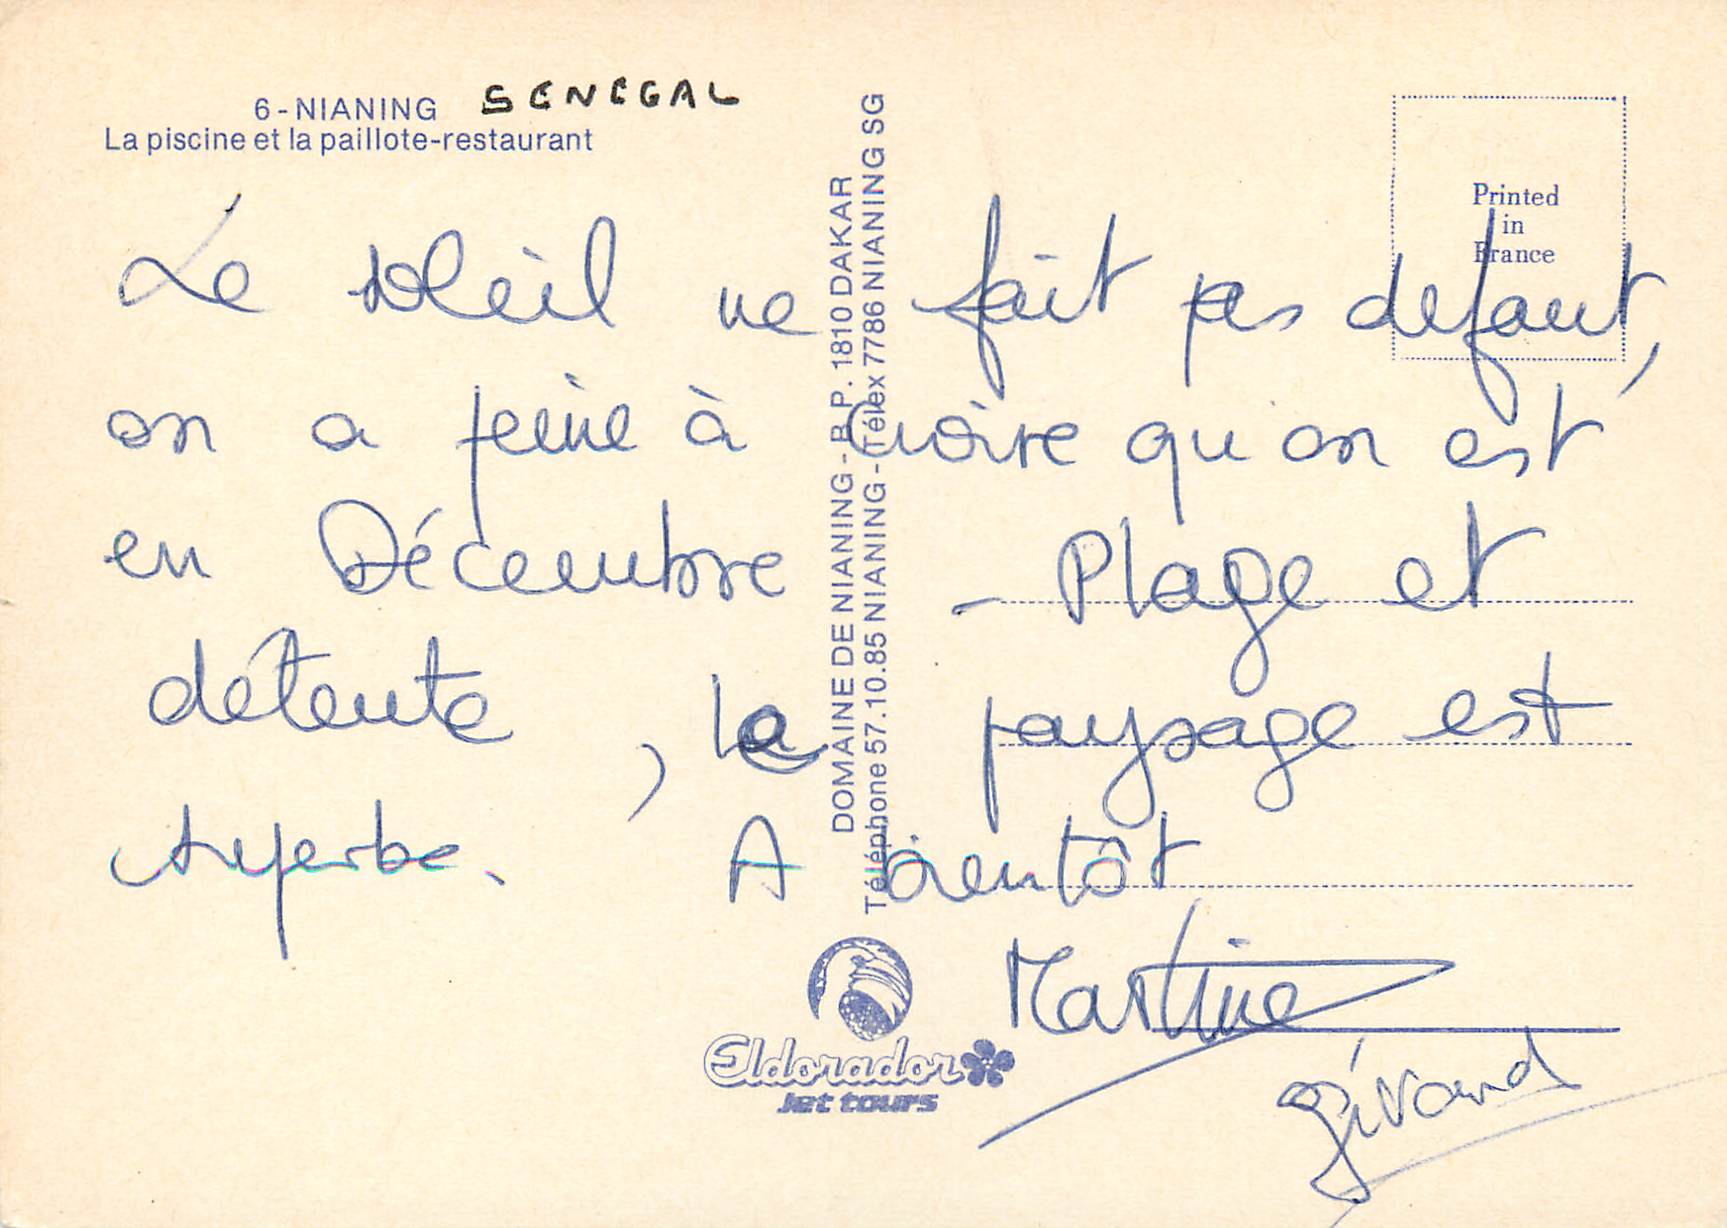 6-NIANING SENEGAL
La piscine et la paillote-restaurant
Le soleil ne fait pas defaut,
on a peine à croire qu'on est
en Décembre - Plage et
détente, le paysage est
superbe. A bientôt
Martine
Girand
DOMAINE DE NIANING - B.P. 1810 DAKAR
Téléphone 57.10.85 NIANING - Télex 7786 NIANING SG
Printed
in
France
Eldorador
Jet tours